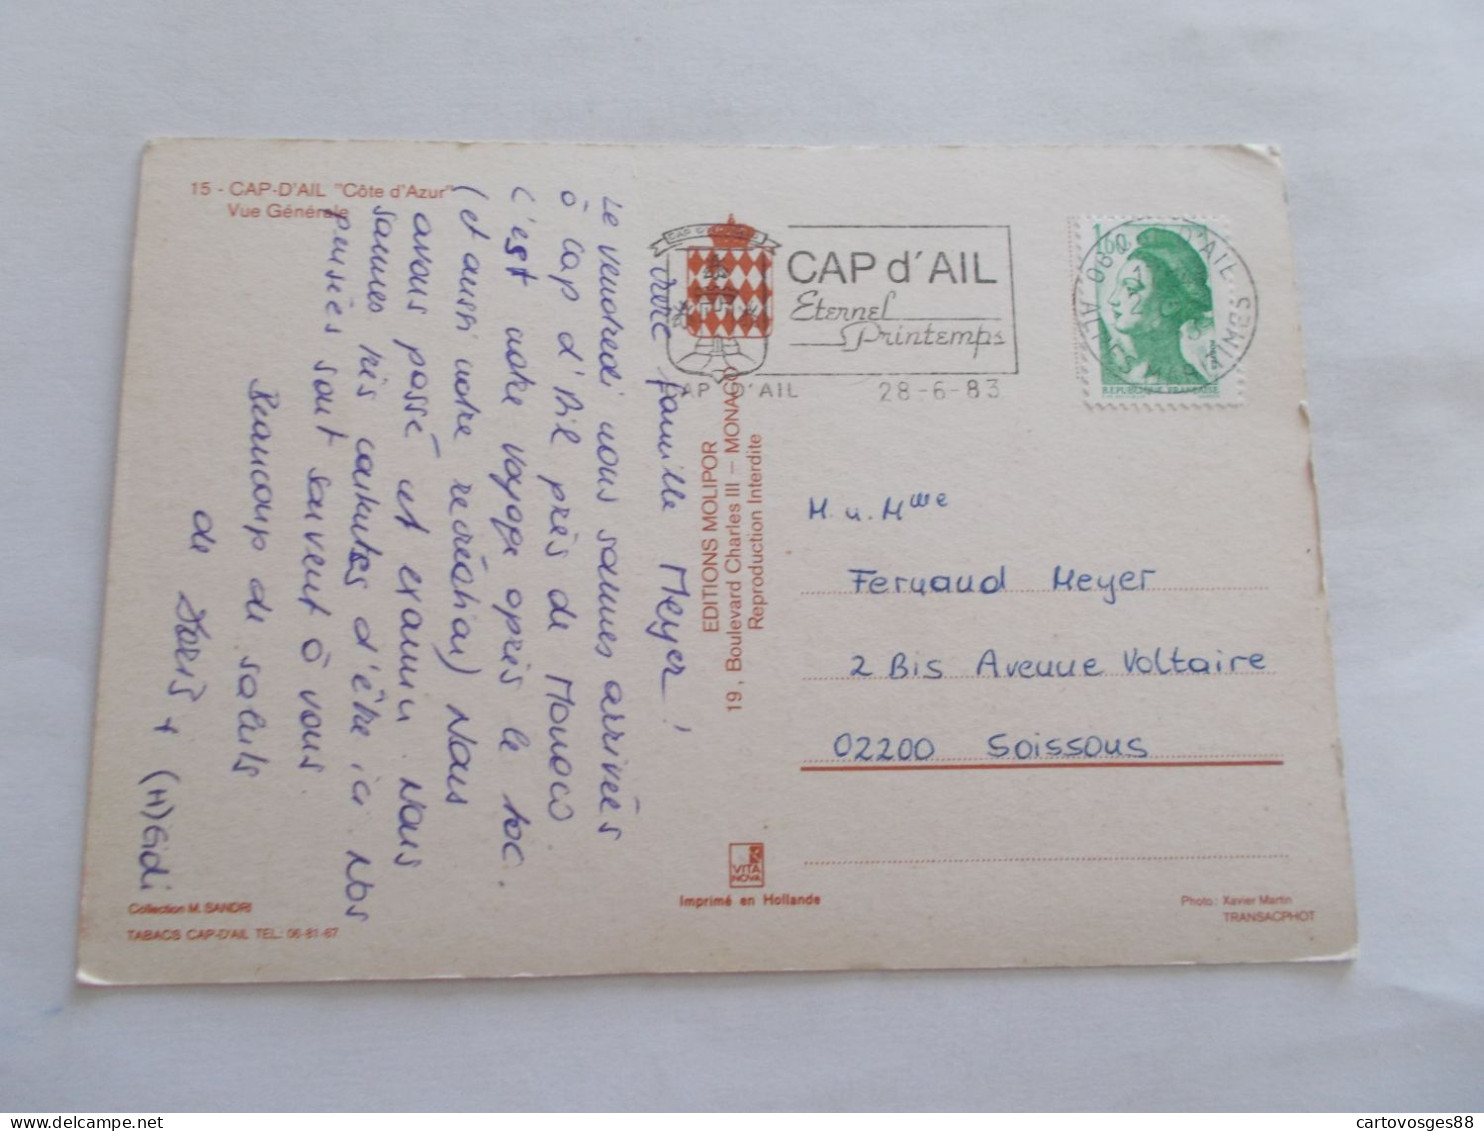 15 - CAP-D'AIL "Côte d'Azur"
Vue Générale
CAP d'AIL
Eternel
Printemps
CAP D'AIL 28-6-83
1,60
REPUBLIQUE FRANÇAISE
CAP D'AIL
ALPES MARITIMES
EDITIONS MOLIPOR
19, Boulevard Charles III – MONACO
Reproduction Interdite
famille Meyer!
Le vendredi nous sommes arrivés
à Cap d'Ail près de Monaco
C'est notre voyage après le toc.
(et aussi notre recréation) Nous
avons passé cet examin. Nous
sommes très d'être ici. Nos
pensiès sont souvent ô vous
Beaucoup de saluts
de Doris + (H)Eidi
M. u. Mme
Fernand Meyer
2 Bis Avenue Voltaire
02200 Soissons
VITA
NOVA
Imprimé en Hollande
Collection M. SANDRI
TABACS CAP-D'AIL TEL: 06-81-67
Photo: Xavier Martin
TRANSACPHOT
cartovosges88